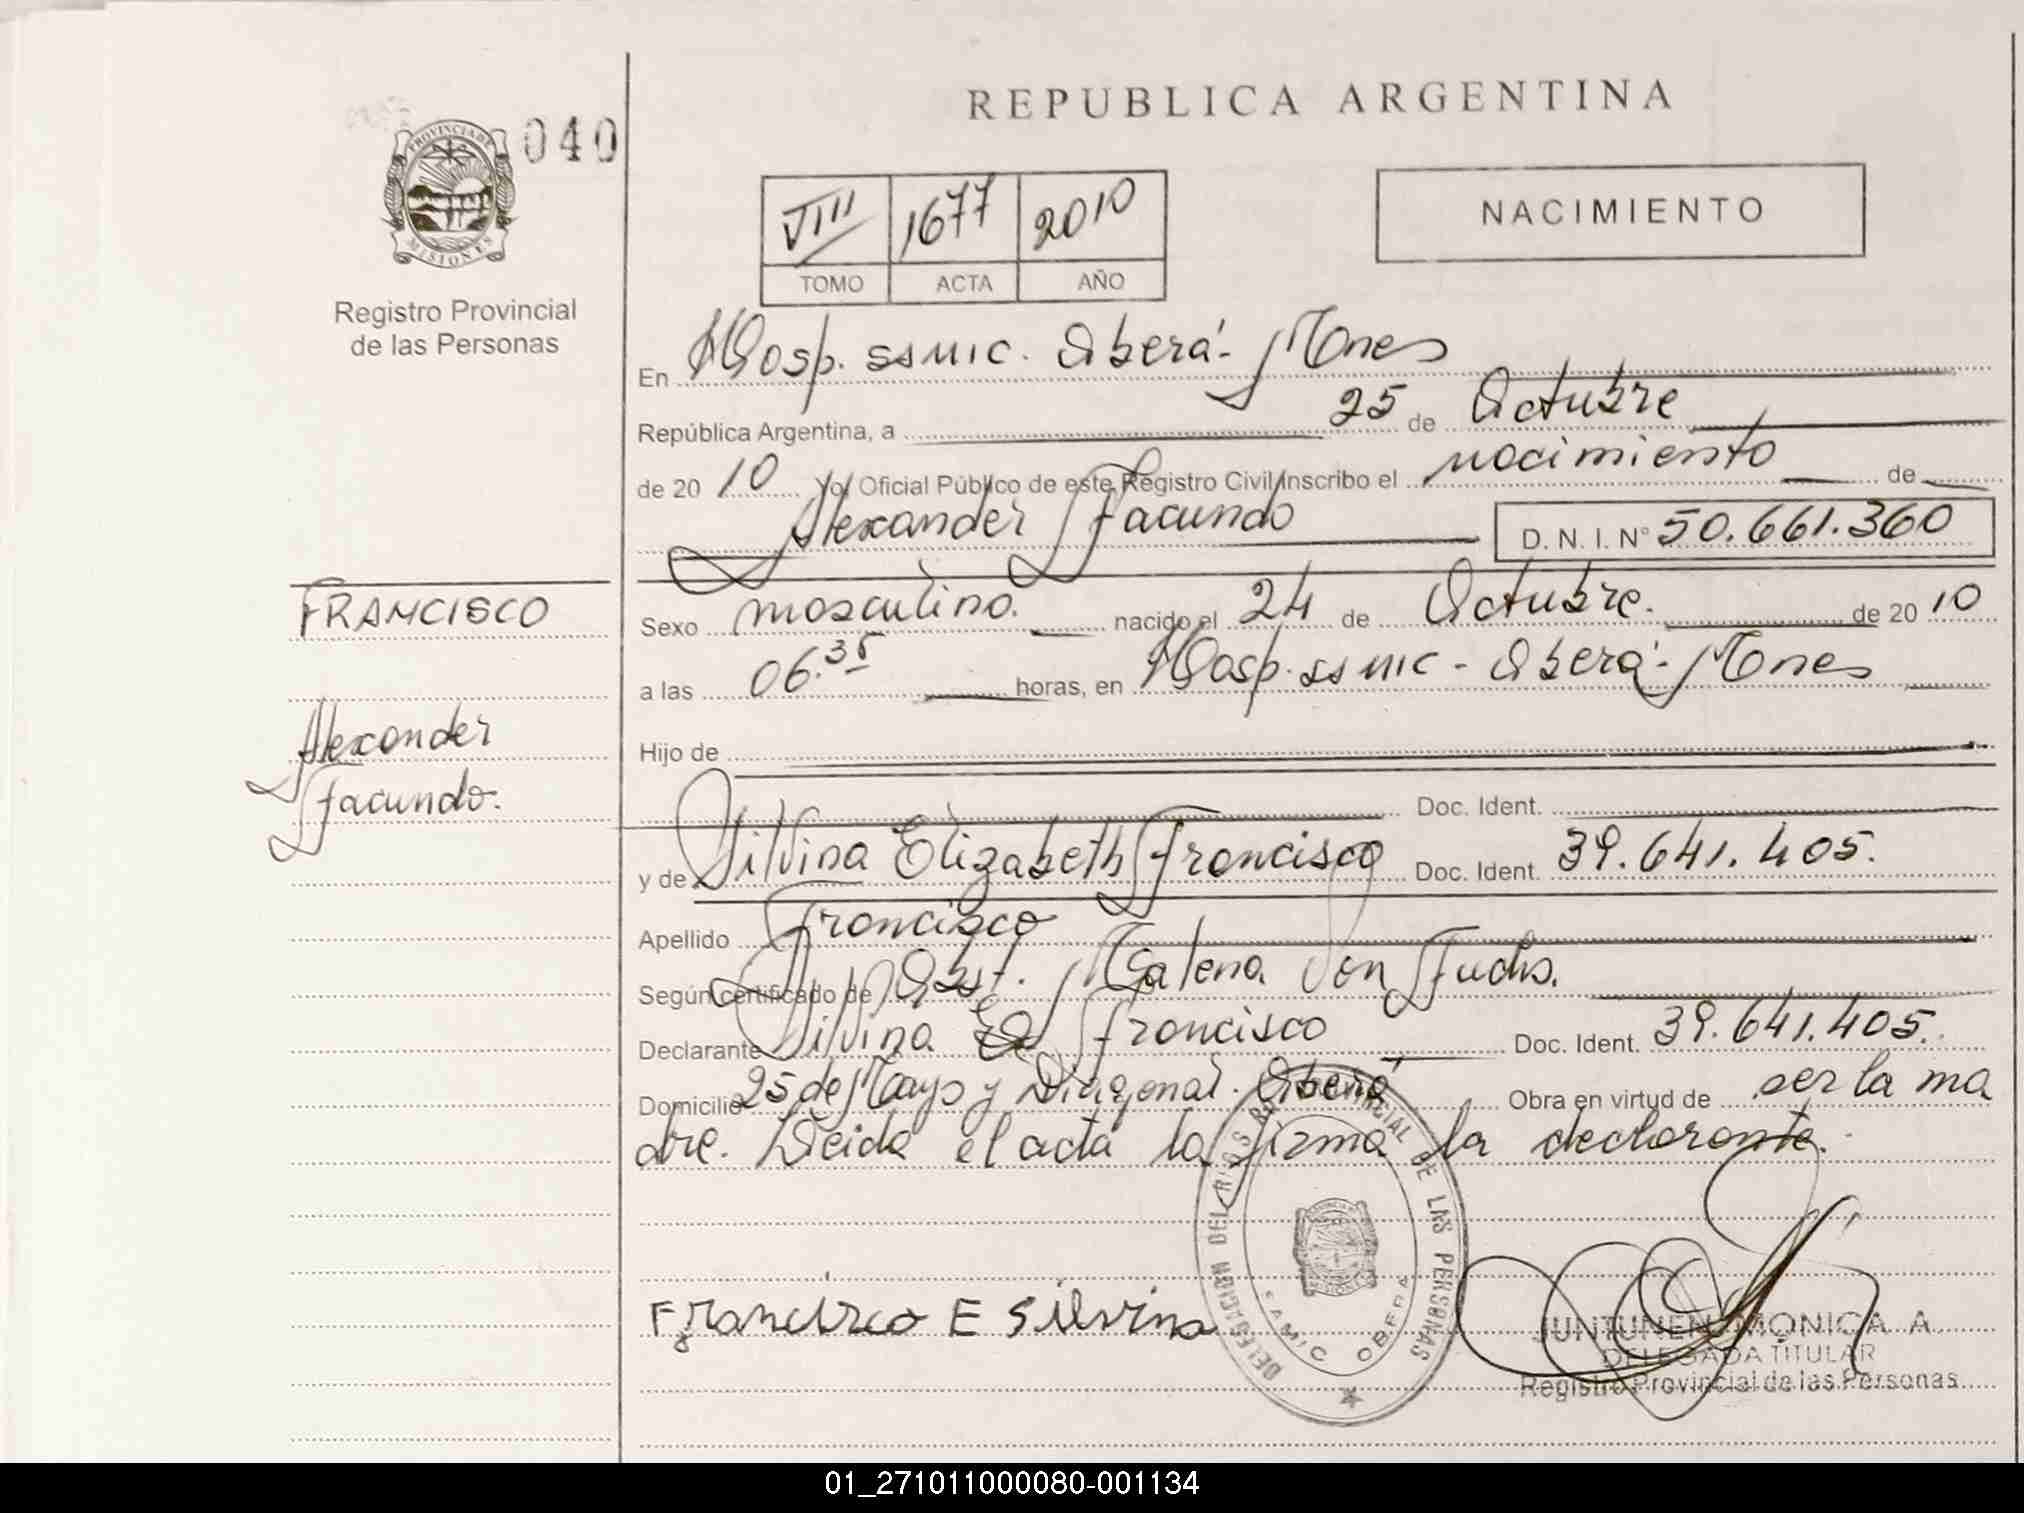 040
PROVINCIA DE
MISIONES
Registro Provincial
de las Personas
FRANCISCO
Alexander
Facundo.
REPUBLICA ARGENTINA
VIII 1677 2010
TOMO ACTA AÑO
NACIMIENTO
En Hosp. ssmic. Oberá - Mnes
República Argentina, a 25 de Octubre
de 20 10 Yo, Oficial Público de este Registro Civil Inscribo el nacimiento de
Alexander Facundo D. N. I. N° 50.661.360
Sexo masculino. nacido el 24 de Octubre. de 20 10
a las 06.35 horas, en Hosp. ssmic - Oberá - Mnes
Hijo de
Doc. Ident.
y de Silvina Elizabeth Francisco Doc. Ident. 39.641.405.
Apellido Francisco
Según certificado de Obst. Malena Von Fuchs.
Declarante Silvina E Francisco Doc. Ident. 39.641.405.
Domicilio 25 de Mayo y Diagonal. Oberá Obra en virtud de ser la ma
dre. Leida el acta la firma la declarante.
Francisco E Silvina
DELEGACION DEL PROVINCIAL DE LAS PERSONAS
SAMIC OBERA
JUNTUNEN MONICA A.
DELEGADA TITULAR
Registro Provincial de las Personas
01_271011000080-001134